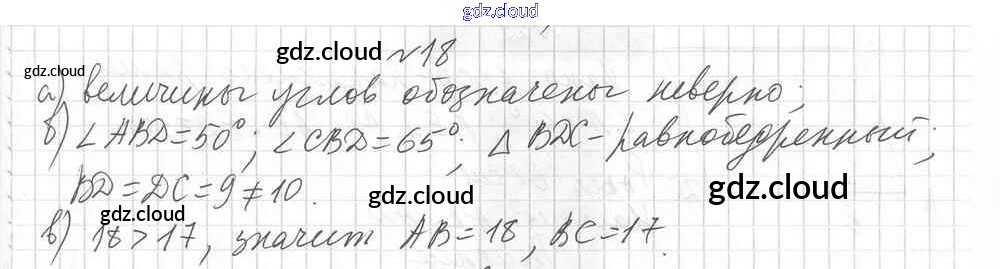 gdz.cloud
gdz.cloud №18
gdz.cloud
а) величины углов обозначены неверно;
б) ∠ABD=50°; ∠CBD=65°; △BDC-равнобедренный;
BD=DC=9≠10.
gdz.cloud gdz.cloud
gdz.cloud
в) 18>17, значит AB=18, BC=17.